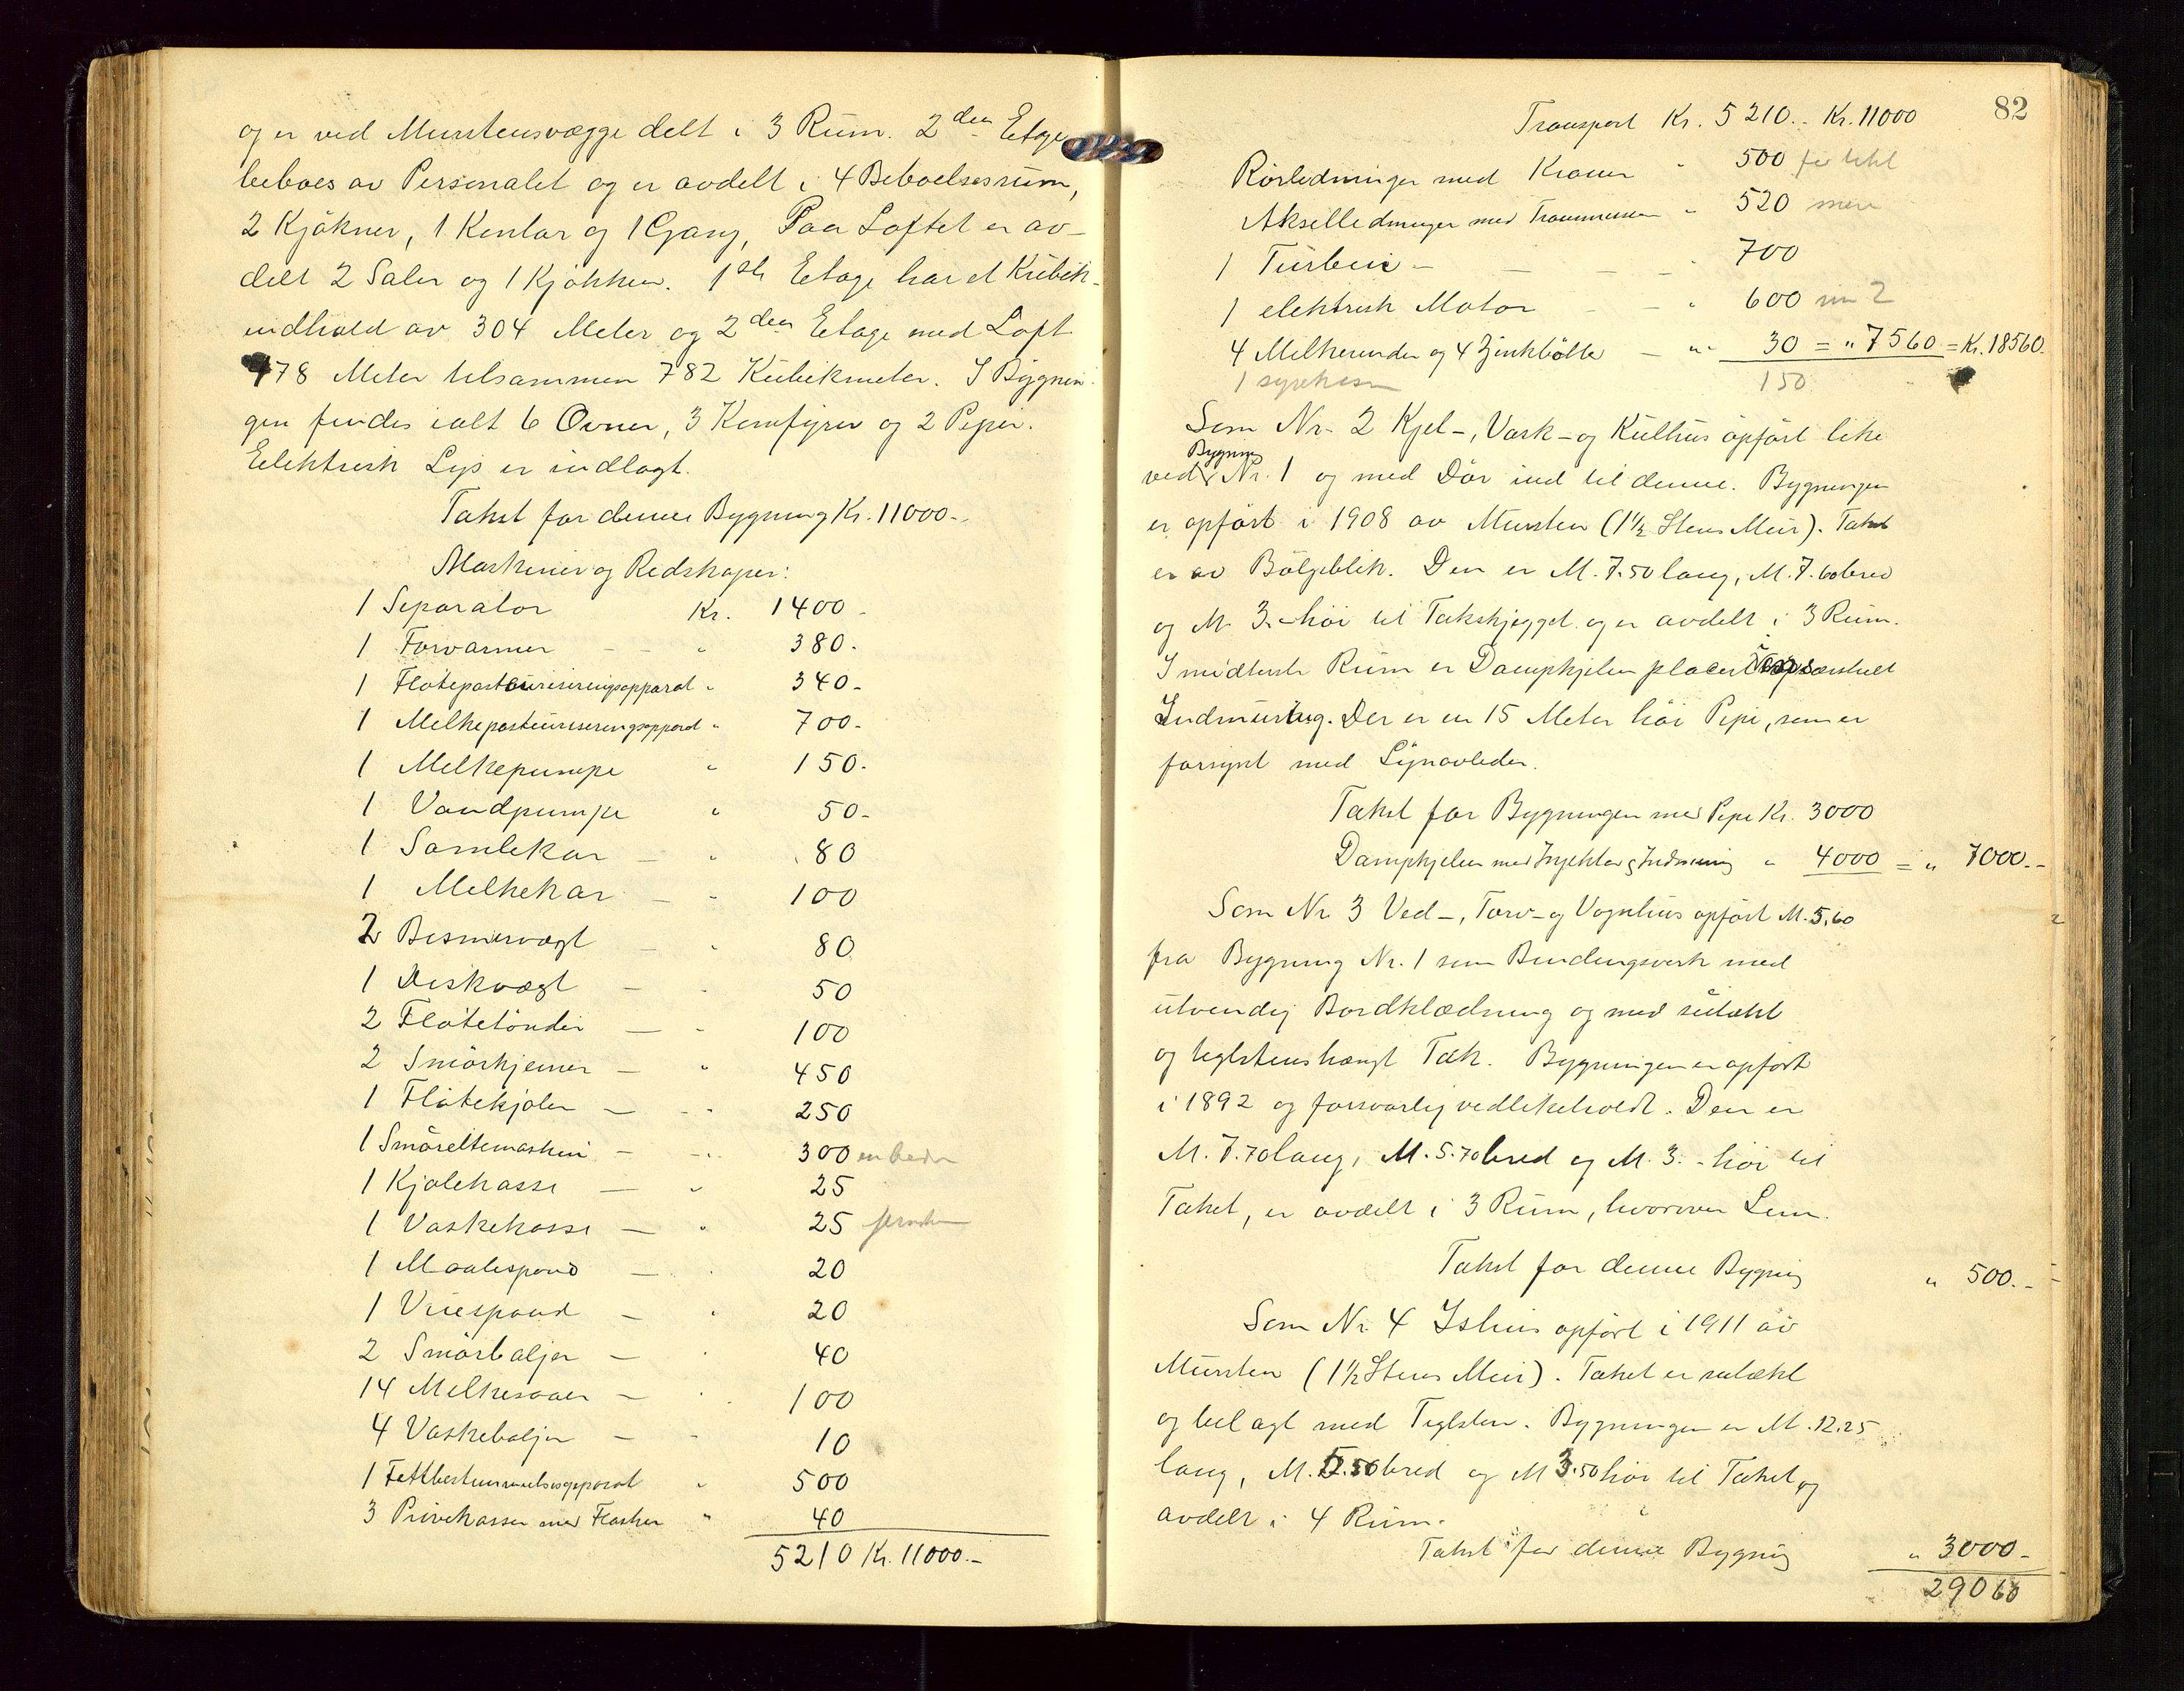 og er ved Murstensvægge delt i 3 Rum. 2den Etage
beboes av Personalet og er avdelt i 4 Beboelsesrum,
2 Kjökner, 1 Kontor og 1 Gang, Paa Loftet er av-
delt 2 Saler og 1 Kjökken. 1ste Etage har et Kubik-
indhold av 304 Meter og 2den Etage med Loft
478 Meter tilsammen 782 Kubikmeter. I Bygnin-
gen findes ialt 6 Ovner, 3 Komfyrer og 2 Piper.
Elektrisk Lys er indlagt.
Takst for denne Bygning Kr. 11000.-
Maskiner og Redskaper:
1 Separator Kr. 1400.-
1 Forvarmer - - " 380.-
1 Flötepasteuriseringsapparat " 340.-
1 Melkepasteuriseringsapparat " 700.-
1 Melkepumpe " 150.-
1 Vandpumpe " 50.-
1 Samlekar - " 80
1 Melkekar - " 100
2 Bismervægt - " 80
1 Deskvægt - " 50
2 Flötetönder - " 100
2 Smörkjerner - " 450
1 Flötekjöler - " 250
1 Smöreltemaskin - " 300 en bedre
1 Kjölekasse - " 25
1 Vaskekasse - " 25
1 Maalespand - " 20
1 Veiespand - " 20
2 Smörbaljer - " 40
14 Melkespann - " 100
4 Vaskebaljer - - 10
1 Fettbestemmelsesapparat " 500
3 Prövekasser med Flasker " 40
5210 Kr. 11000.-
82
Transport Kr. 5210.- Kr. 11000
Rörledninger med Kraner " 500
Akselledninger med Trommer " 520 mere
1 Turbin - - - - " 700
1 elektrisk Motor - - " 600 nu 2
4 Melkespander og 4 Zinkbötter - " 30 = " 7560 = Kr. 18560.
1 syrekasse 150
Som Nr. 2 Kjel-, Vask- og Kulhus opfört like
Bygning
ved Nr. 1 og med Dör ind til denne. Bygningen
er opfört i 1908 av Mursten (1½ Stens Mur). Taket
er av Bölgeblik. Den er M. 7.50 lang, M. 7.60 bred
og M. 3.- höi til Takskjegget og er avdelt i 3 Rum.
I midterste Rum er Dampkjelen placert i særskilt
Indmuring. Der er en 15 Meter höi Pipe, som er
forsynt med Lynavleder.
Takst for Bygningen med Pipe Kr. 3000
Dampkjelen med Injektor & Indmuring " 4000 = " 7000.-
Som Nr. 3 Ved-, Torv- og Vognhus opfört M. 5.60
fra Bygning Nr. 1 som Bindingsverk med
utvendig Bordklædning og med sutækt
og teglstenshængt Tak. Bygningen er opfört
i 1892 og forsvarlig vedlikeholdt. Den er
M. 7.70 lang, M. 5.70 bred og M. 3.- höi til
Taket, er avdelt i 3 Rum, hvorover Lem.
Takst for denne Bygning " 500.-
Som Nr. 4 Ishus opfört i 1911 av
Mursten (1½ Stens Mur). Taket er sutækt
og belagt med Teglsten. Bygningen er M. 12.25
lang, M. 5.50 bred og M 3.50 höi til Taket og
avdelt i 4 Rum.
Takst for denne Bygning " 3000.-
29060